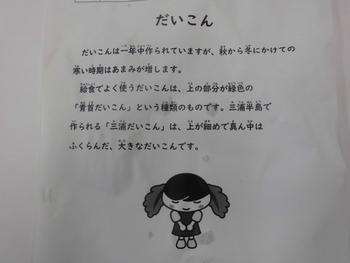 だいこん
だいこんは一年中作られていますが、秋から冬にかけての
寒い時期はあまみが増します。
給食でよく使うだいこんは、上の部分が緑色の
「青首だいこん」という種類のものです。三浦半島で
作られる「三浦だいこん」は、上が細めで真ん中は
ふくらんだ、大きなだいこんです。